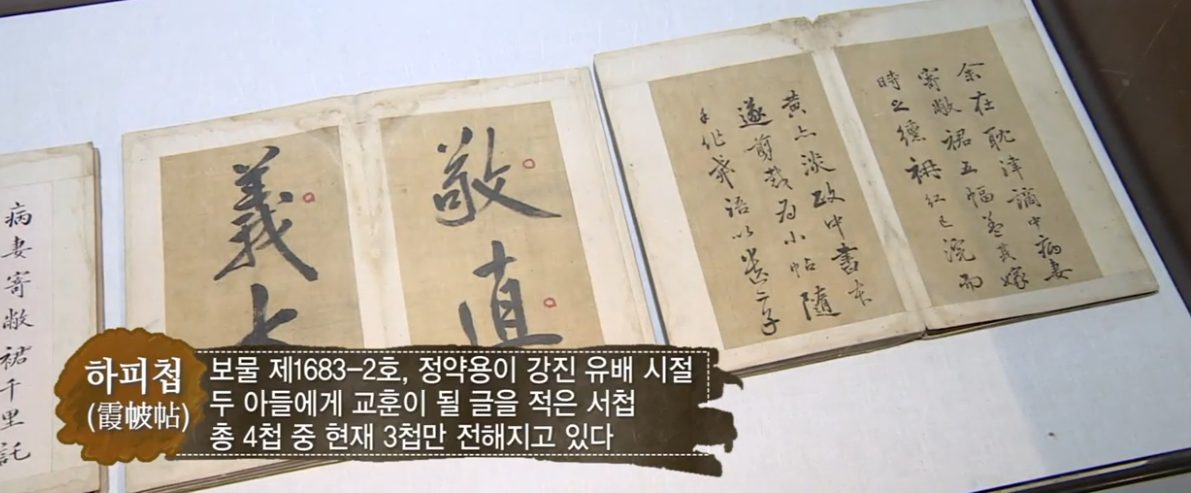 余在耽津謫中病妻
寄敝裙五幅蓋其嫁
時之纁衻紅已浣而
黃亦淡政中書本
遂剪裁為小帖隨
手作戒語以遺二子
敬直
義
病妻寄敝裙千里託
하피첩
(霞帔帖)
보물 제1683-2호, 정약용이 강진 유배 시절
두 아들에게 교훈이 될 글을 적은 서첩
총 4첩 중 현재 3첩만 전해지고 있다